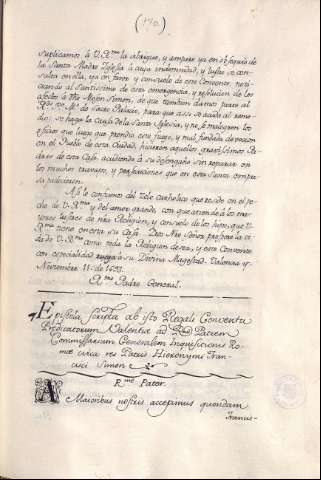 (170.)
suplicamos à V. Rma. la abrigue, y ampare ya en obsequio de
la Santa Madre Iglesia à cuya indemnidad, y lustre se con-
sulta en ella, ya en favor y consuelo de este Convento, noti-
ciando al Santissimo de esta emergencia, y resolucion de los
afectos à Mn Mosen Simon, de que tambien damos parte al
Rdo. Pe. Mo. de Sacro Palacio, para que assi se acuda al reme-
dio: se haga la Causa de la Santa Iglesia, y no se malogren los
oficios que luego que prendio este fuego, y mal fundada devocion
en el Pueblo de esta Ciudad, hicieron aquellos gravissimos Pa-
dres de esta Casa, acudiendo à su defengaño sin reparar en
los muchos travajos, y persecuciones que en esta santa empre-
sa padecieron.
Assi lo confiamos del zelo catholico que reside en el pe-
cho de V. Rma. y del amor grande, con que atiende à los ma-
yores lustres de nra Religion, y consuelo de los hijos, que V.
Rma. tiene en esta su Casa. Dios Nro Señor prospere la vi-
da de V. Rma. como toda la Religion desea, y este Convento
con especialidad ruega à su Divina Magestad. Valencia y
Noviembre 11. de
Rmo. Padre General.
Epistola scripta ab isto Regali Conventu
Prædicatorum Valentiæ ad Rdum Patrem
Commissarium Generalem Inquisitionis Ro-
mæ circa res Patris Hieronymi Fran-
cisci Simon
Rme. Pater.
A Maioribus nostris accepimus quondam